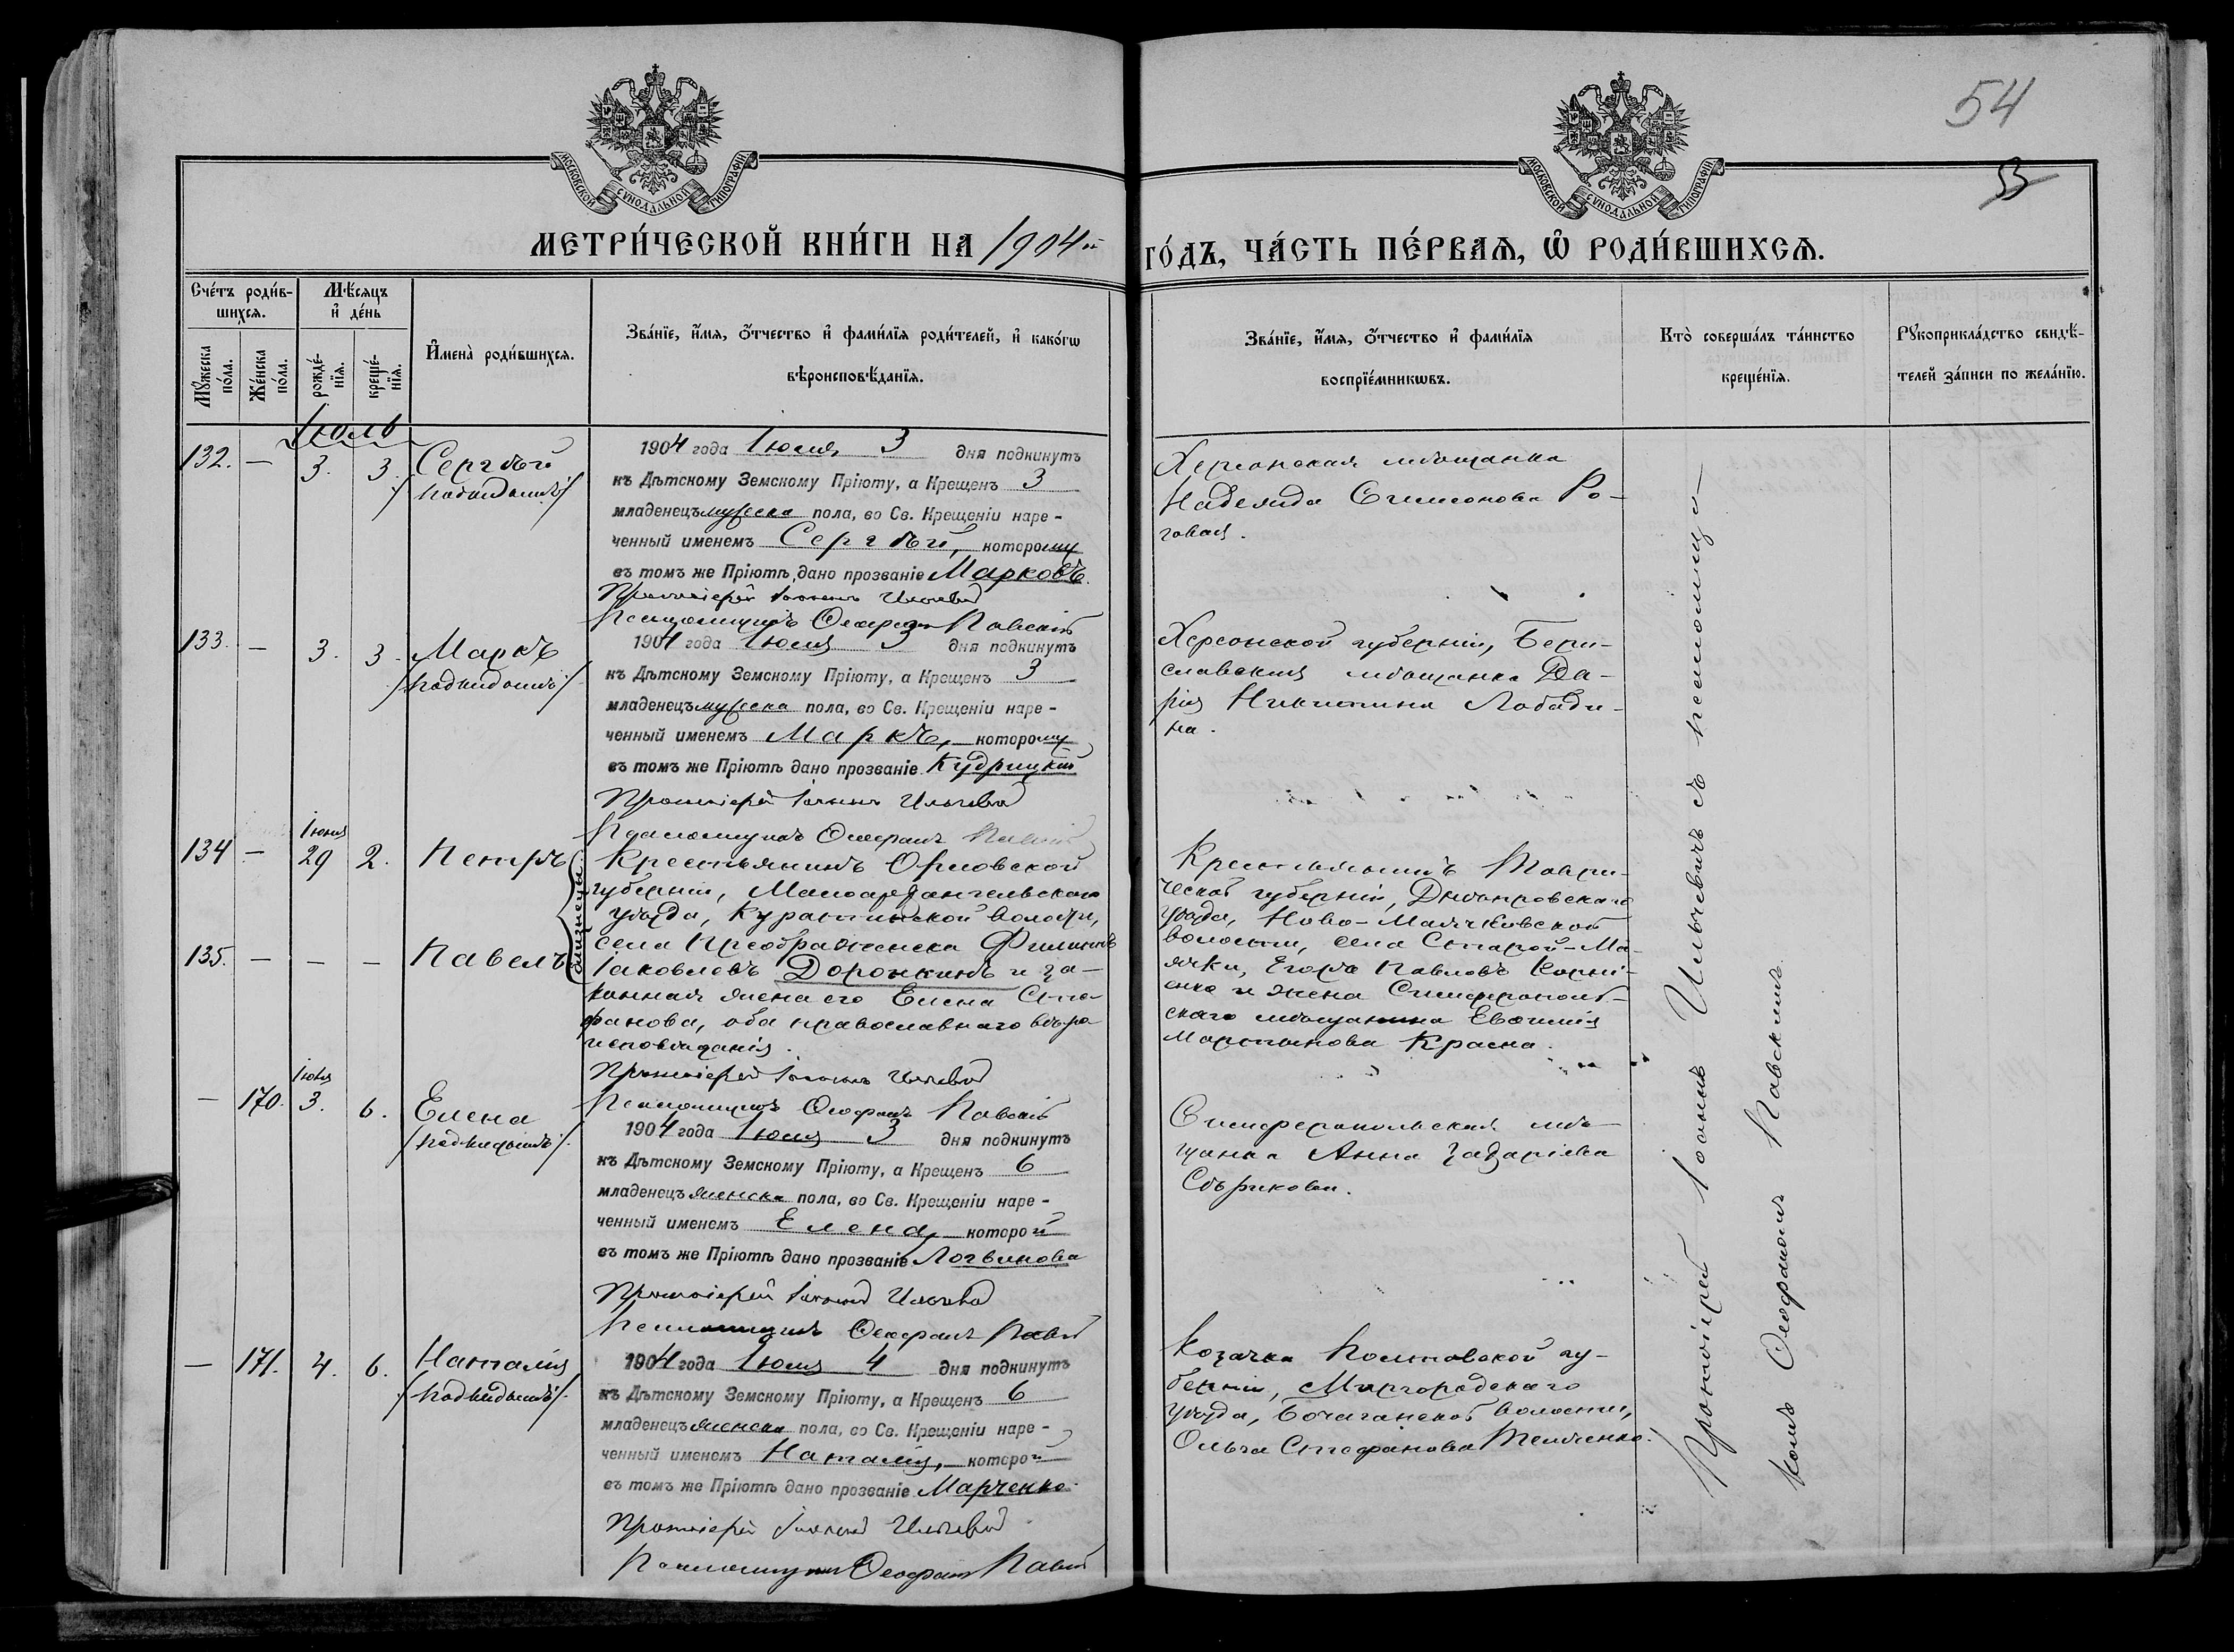 54
53
МОСКОВСКОЙ СѴНОДАЛЬНОЙ ТИПОГРАФІИ
МОСКОВСКОЙ СѴНОДАЛЬНОЙ ТИПОГРАФІИ
МЕТРИ́ЧЕСКОЙ КНИ́ГИ НА 1904й
ГО́ДЪ, ЧА́СТЬ ПЕ́РВАѦ, Ѡ҆ РОДИ́ВШИХСѦ.
Сче́тъ роди́в-
шихсѧ.
Мꙋжеска по́ла.
Же́нска по́ла.
Мѣ́сѧцъ
и҆ де́нь
рожде́-
нїѧ.
креще́-
нїѧ.
И҆мена̀ роди́вшихсѧ.
Зва́нїе, и҆́мѧ, ѻ҆́тчество и҆ фами́лїѧ роди́телей, и҆ како́гѡ
вѣроисповѣ́данїѧ.
Зва́нїе, и҆́мѧ, ѻ҆́тчество и҆ фами́лїѧ
воспрїе́мникѡвъ.
Кто̀ соверша́лъ та́инство
креще́нїѧ.
Рꙋкоприкла́дство свидѣ́-
телей за́писи по жела́нїю.
Іюль
132. — 3. 3. Сергѣй
/подкидышъ/
1904 года Іюля 3 дня подкинутъ
къ Дѣтскому Земскому Пріюту, а Крещенъ 3
младенецъ мужеска пола, во Св. Крещеніи наре-
ченный именемъ Сергѣй, которому
въ томъ же Пріютѣ дано прозваніе Марковъ.
Протоіерей Іоаннъ Ильчевъ
Псаломщикъ Ѳеофанъ Павскій
Херсонская мѣщанка
Надежда Симонова Ро-
говая.
133. — 3. 3. Маркъ
/подкидышъ/
1904 года Іюля 3 дня подкинутъ
къ Дѣтскому Земскому Пріюту, а Крещенъ 3
младенецъ мужеска пола, во Св. Крещеніи наре-
ченный именемъ Маркъ, которому
въ томъ же Пріютѣ дано прозваніе Кудрицкій
Протоіерей Іоаннъ
Псаломщикъ Ѳеофанъ Павскій
Херсонской губерніи, Бери-
славская мѣщанка Да-
рія Никитина Лобади-
на.
134 — Іюня 29 2. Петръ
135. — — — Павелъ
близнецы
Крестьянинъ Орловской
губерніи, Малоархангельскаго
уѣзда, волости,
села Преображенска Филиппъ
Іаковлевъ Доронкинъ и за-
конная жена его Елена Сте-
фанова, оба православнаго вѣро-
исповѣданія.
Протоіерей Іоаннъ
Псаломщикъ Ѳеофанъ Павскій
Крестьянинъ Таври-
ческой губерніи, Днѣпровскаго
уѣзда, Ново-Маячковской
волости, села Старой-Ма-
ячки, Егоръ Павловъ Корні-
енко и жена Симферополь-
скаго мѣщанина Евѳимія
Мартынова Красна.
— 170. Іюля 3. 6. Елена
/подкидышъ/.
1904 года Іюля 3 дня подкинутъ
къ Дѣтскому Земскому Пріюту, а Крещенъ 6
младенецъ женска пола, во Св. Крещеніи наре-
ченный именемъ Елена, которой
въ томъ же Пріютѣ дано прозваніе Логвинова
Протоіерей Іоаннъ
Псаломщикъ Ѳеофанъ
Симферопольская мѣ-
щанка Анна Захаріева
Сѣрикова.
— 171. 4. 6. Наталія
/подкидышъ/.
1904 года Іюля 4 дня подкинутъ
къ Дѣтскому Земскому Пріюту, а Крещенъ 6
младенецъ женска пола, во Св. Крещеніи наре-
ченный именемъ Наталія, которой
въ томъ же Пріютѣ дано прозваніе Марченко
Протоіерей Іоаннъ
Псаломщикъ Ѳеофанъ
Козачка Полтавской гу-
берніи, Миргородскаго
уѣзда, волости,
Ольга Стефанова
Протоіерей Іоаннъ Ильчевичъ съ псаломщи-
комъ Ѳеофаномъ Павскимъ.